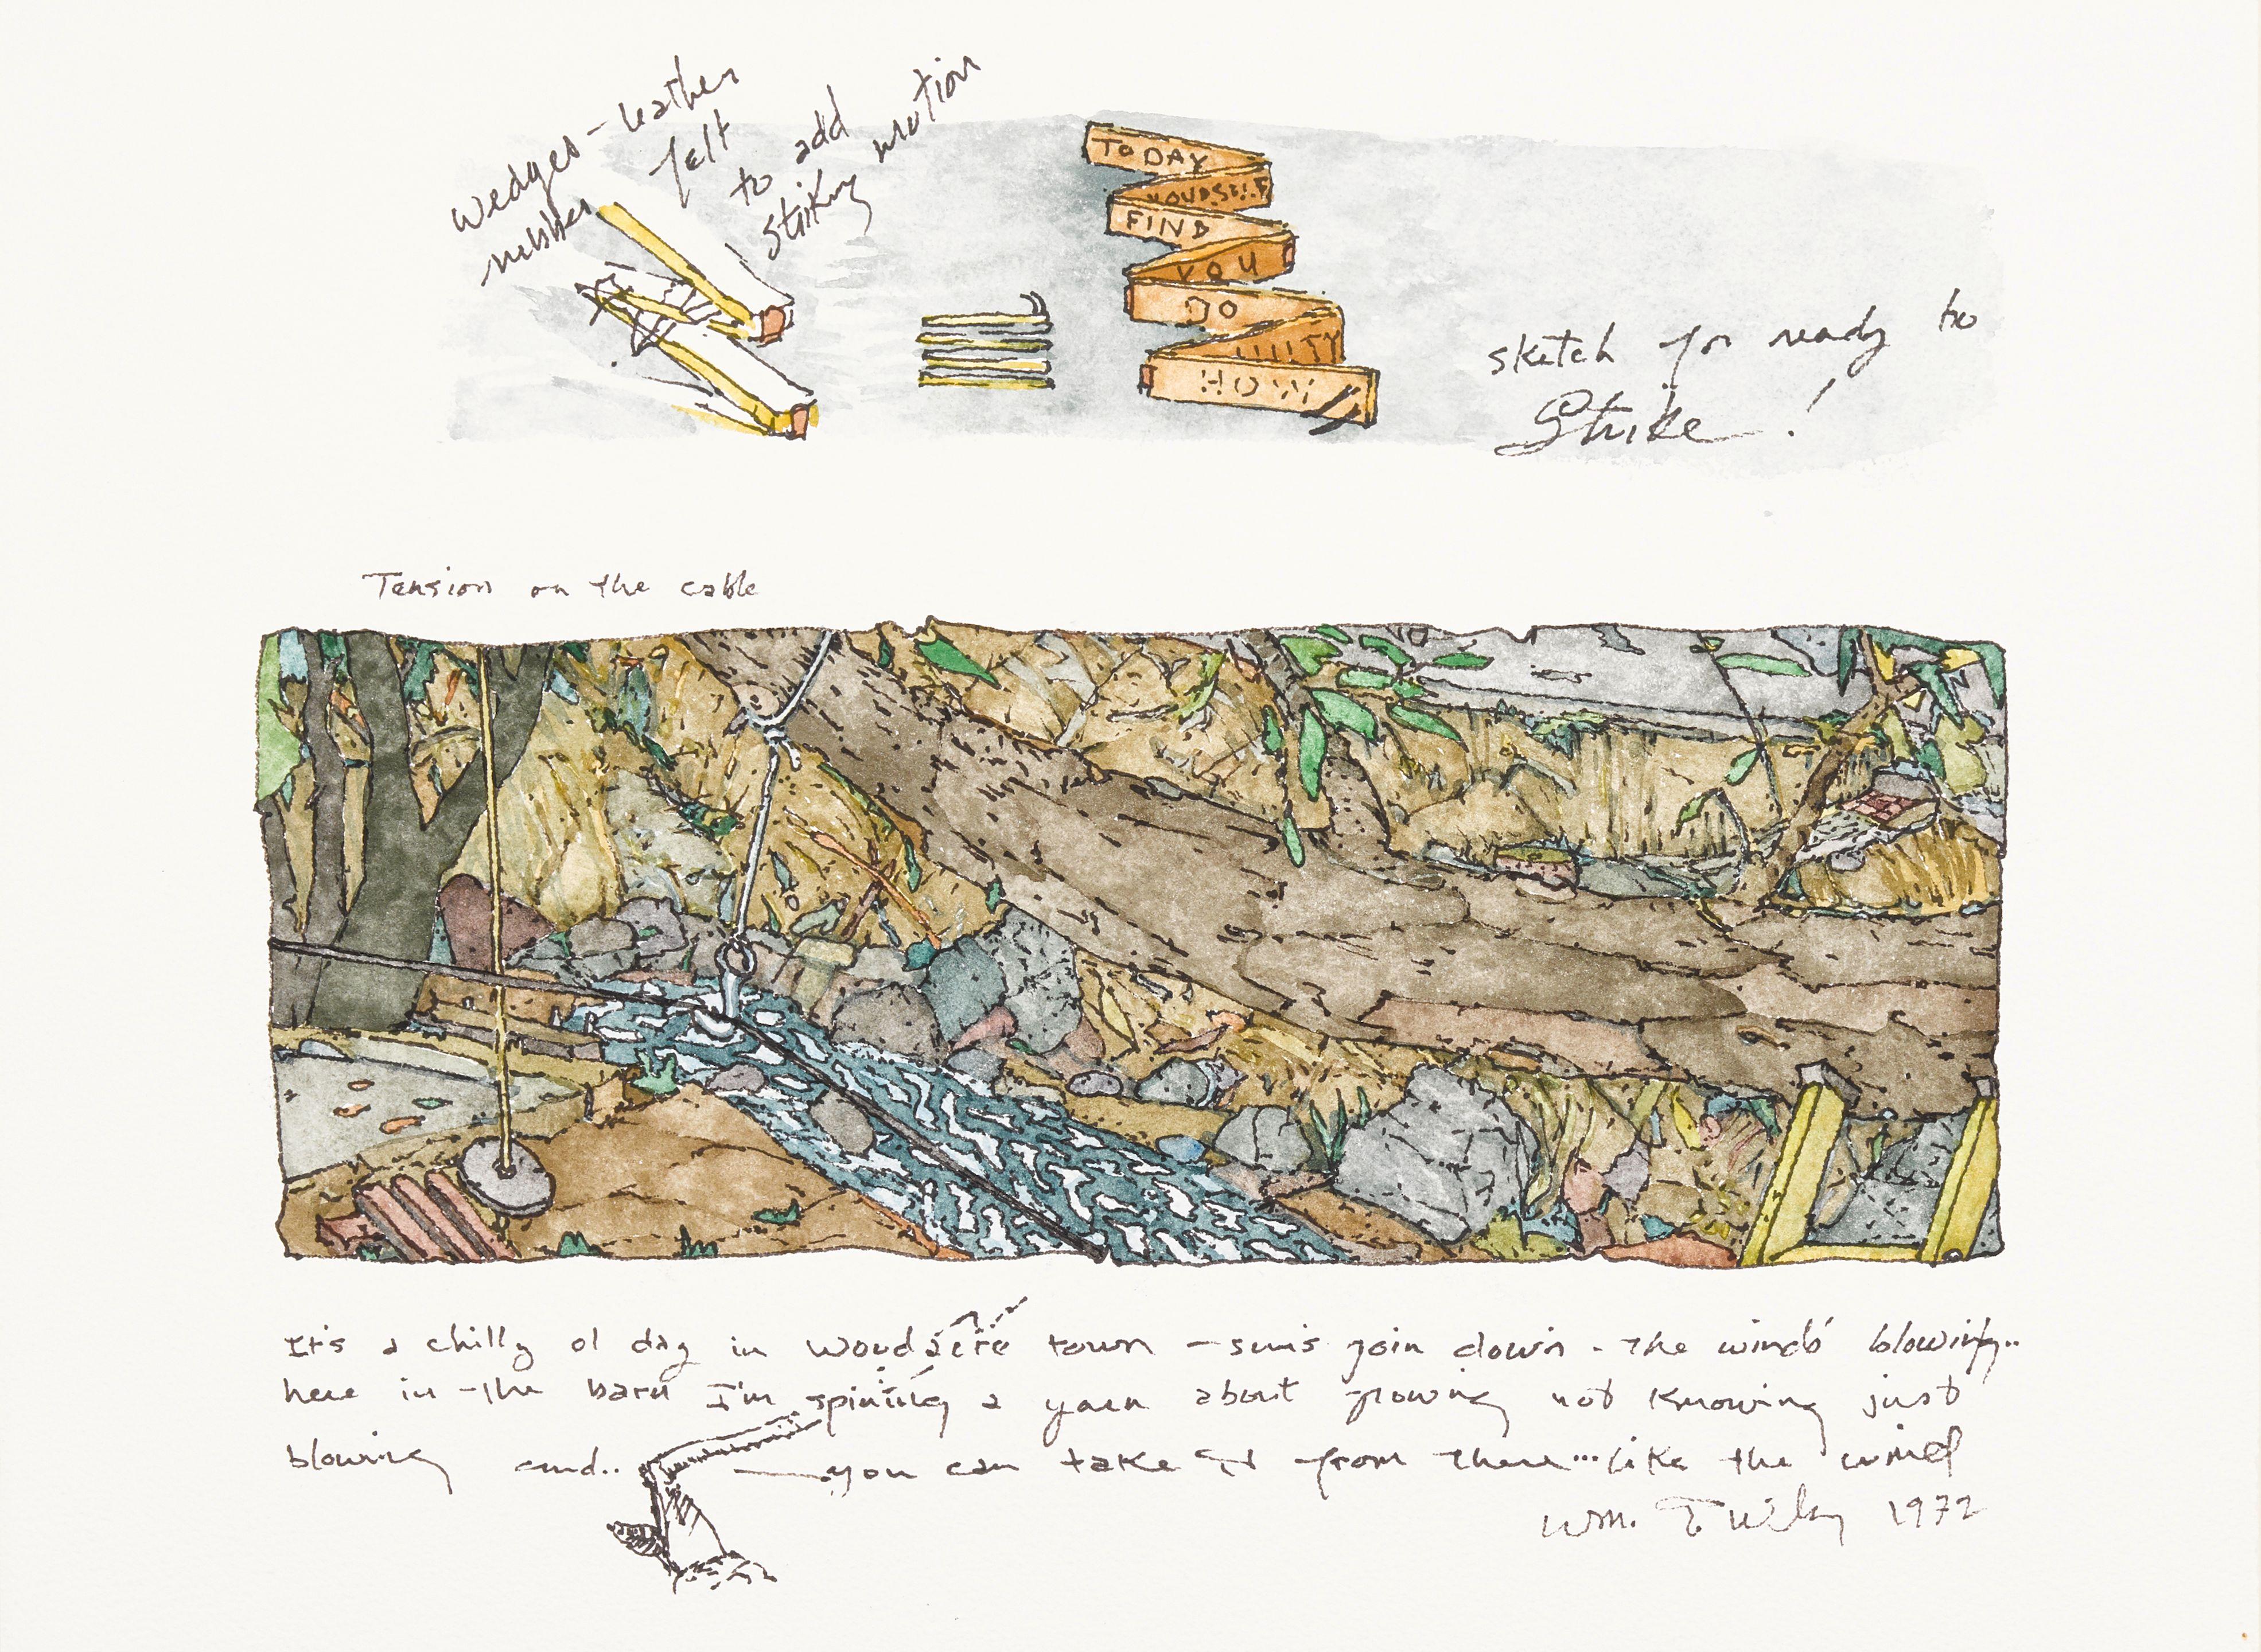 Wedges - leather
rubber felt
to add
striking motion
TODAY
YOURSELF
FIND
YOU
DO
HOW
sketch for ready to
Strike!
Tension on the cable
It's a chilly ol day in Woodacre town - suns goin down - the winds blowing..
here in the barn I'm spining a yarn about growing not knowing just
blowing and.. you can take it from there... like the wind
Wm. T. Wiley 1972